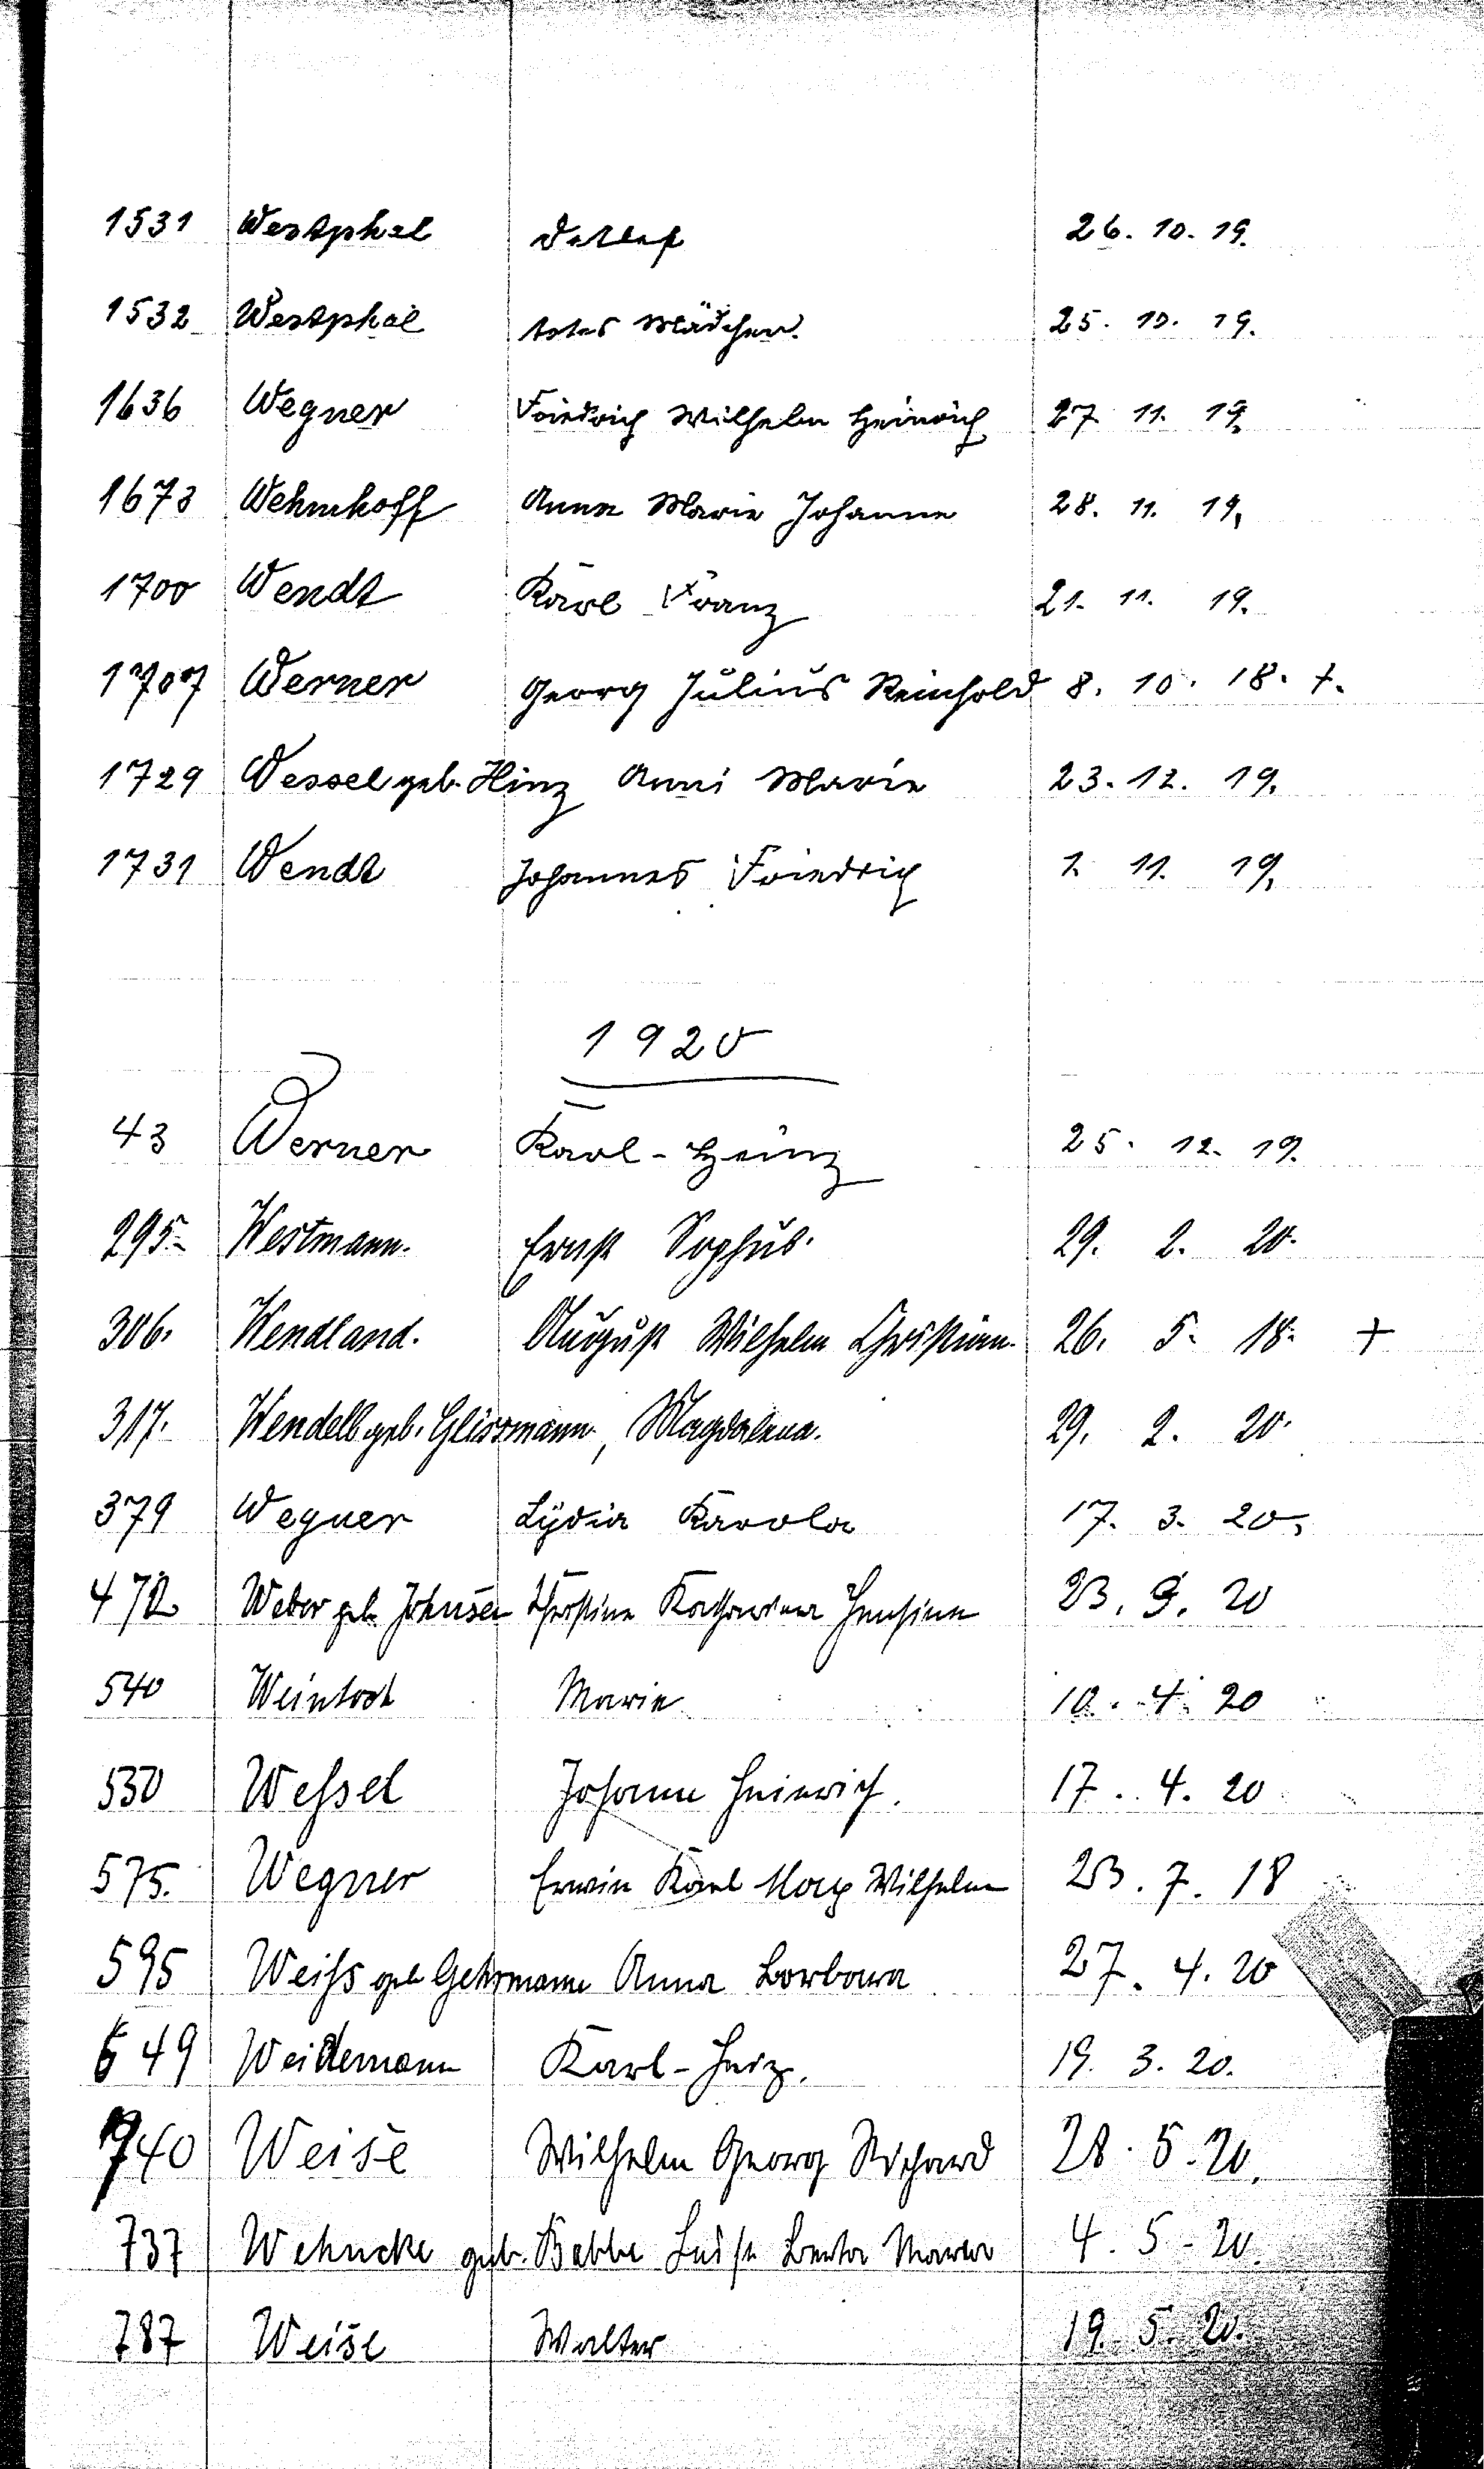 1531 Westphal Detlef 26. 10. 19.
1532 Westphal totes Mädchen. 25. 10. 19.
1636 Wegner Friedrich Wilhelm Heinrich 27. 11. 19.
1673 Wehmhoff Anna Marie Johanne 28. 11. 19.
1700 Wendt Karl Franz 21. 11. 19.
1707 Werner Georg Julius Reinhold 8. 10. 18. +.
1729 Wessel geb. Hinz Anni Marie 23. 12. 19.
1731 Wendt Johannes Friedrich 1. 11. 19.
1920
43 Werner Karl-Heinz 25. 12. 19.
295. Westmann. Ernst Sophus. 29. 2. 20.
306. Wendland. August Wilhelm Christian. 26. 5. 18. +
317. Wendell geb. Glissmann, Magdalena. 29. 2. 20.
379 Wegner Lydia Karola 17. 3. 20.
472 Weber geb. Johnsen Christine Katharina 23. 3. 20
540 Marie 10. 4. 20
530 Weſsel Johann Heinrich. 17. 4. 20
575. Wegner Erwin Karl Max Wilhelm 23. 7. 18
595 Weiſs geb Gehrmann Anna Barbara 27. 4. 20
649 Weidemann Karl-Heiz. 19. 3. 20.
740 Weise Wilhelm Georg Richard 28. 5. 20.
737 Wehncke geb. Babbe Luise Berta Maria 4. 5. 20.
787 Weise Walter 19. 5. 20.